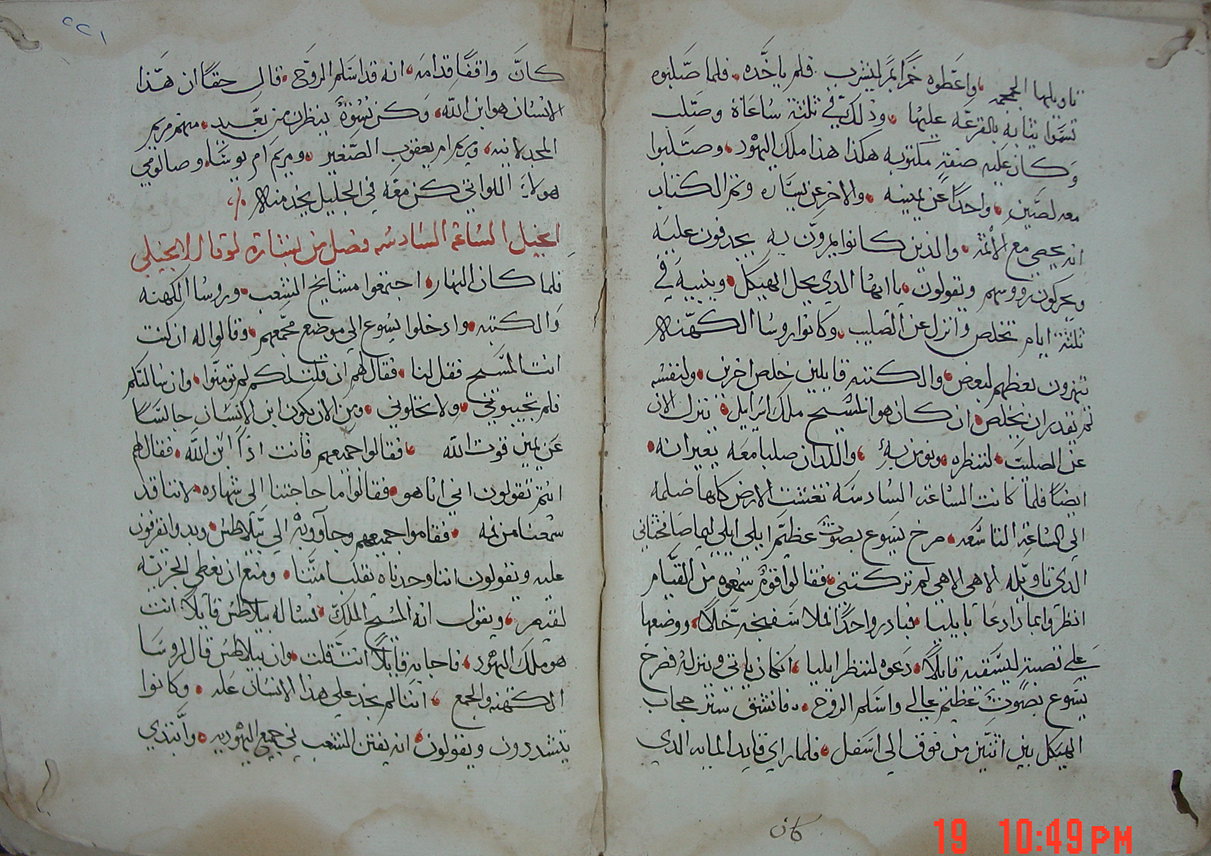 تاويلها الجمجمه واعطوه خمرا بمر ليشرب فلم ياخده فلما صلبوه
تسموا ثيابه بالقرعه عليها وذلك في ثلثة ساعاة وصلب
وكان عليه صفة مكتوبه هكذا هذا ملك اليهود وصلبوا
معه لصين واحدا عن يمينه والاخر عن يساره وتم الكتاب
انه يحصى مع الاثمة والذين كانوا يمرون به يجدفون عليه
ويحركون رووسهم ويقولون يا ايها الدي يحل الهيكل ويبنيه في
ثلثة ايام تخلص وانزل عن الصليب وكانوا روسا الكهنه
يتهزون بعظهم لبعض والكتبه قايلين خلص اخرين ولنفسه
لم يقدر ان يخلص ان كان هو المسيح ملك اسراييل ينزل الان
عن الصليب لننظره ونومن به واللدان صلبا معه يعيرانه
ايضا فلما كانت الساعة السادسه تغشت الارض كلها ظلمه
الى الساعة التاسعه صرخ يسوع بصوت عظيم ايلي ايلي ليما صافختاني
الدي تاويله الاهي الاهي لم تركتني فقالوا قوم سمعوه من القيام
انظروا انما زا دعا بايليا فبادر واحد املا سفنجه خلا ووضعها
علي قصبه ليسقيه قايلا دعوه لننظر ايليا ان كان ياتي وينزله فصرخ
يسوع بصوت عظيم عالي واسلم الروح فانشق ستر حجاب
الهيكل بين اثنين من فوق الى اسفل فلما راي قايد الميه الدي
كان
٢٢١
كان واقفا قدامه انه قد اسلم الروح قال حقا ان هذا
الانسان هو ابن الله وكن نسوة ينظرن من بعيد منهم مريم
المجدلانيه ومريم ام يعقوب الصغير ومريم ام يوسا وصالومي
هولاء اللواتي كن معه في الجليل يخدمنه
انجيل الساعة السادسه فصل من بشارة لوقا الانجيلي
فلما كان النهار اجتمعوا مشايخ الشعب وروسا الكهنه
والكتبه وادخلوا يسوع الى موضع مجمعهم وقالوا له ان كنت
انت المسيح فقل لنا فقال لهم ان قلت لكم لم تومنوا وان سالتكم
فلم تجيبوني ولا تخلوني ومن الان يكون ابن الانسان جالسا
عن يمين قوت الله فقالوا جميعهم فانت ادا ابن الله فقال لهم
انتم تقولون اني انا هو فقالوا ما حاجتنا الى شهاده لاننا قد
سمعنا من فمه فقاموا جميعهم وجاووبه الى بيلاطس وبدوا يقرفون
عليه ويقولون اننا وجدناه يقلب امتنا ومنع ان نعطي الجزيه
لقيصر ويقول انه المسيح الملك فساله بيلاطس قايلا انت
هو ملك اليهود فاجابه قايلا انت قلت وان بيلاطس قال لروسا
الكهنه والجمع انني لم نجد على هذا الانسان عله وكانوا
يتشددون ويقولون انه يفتن الشعب في جميع اليهوديه وابتدي
19 10:49 PM